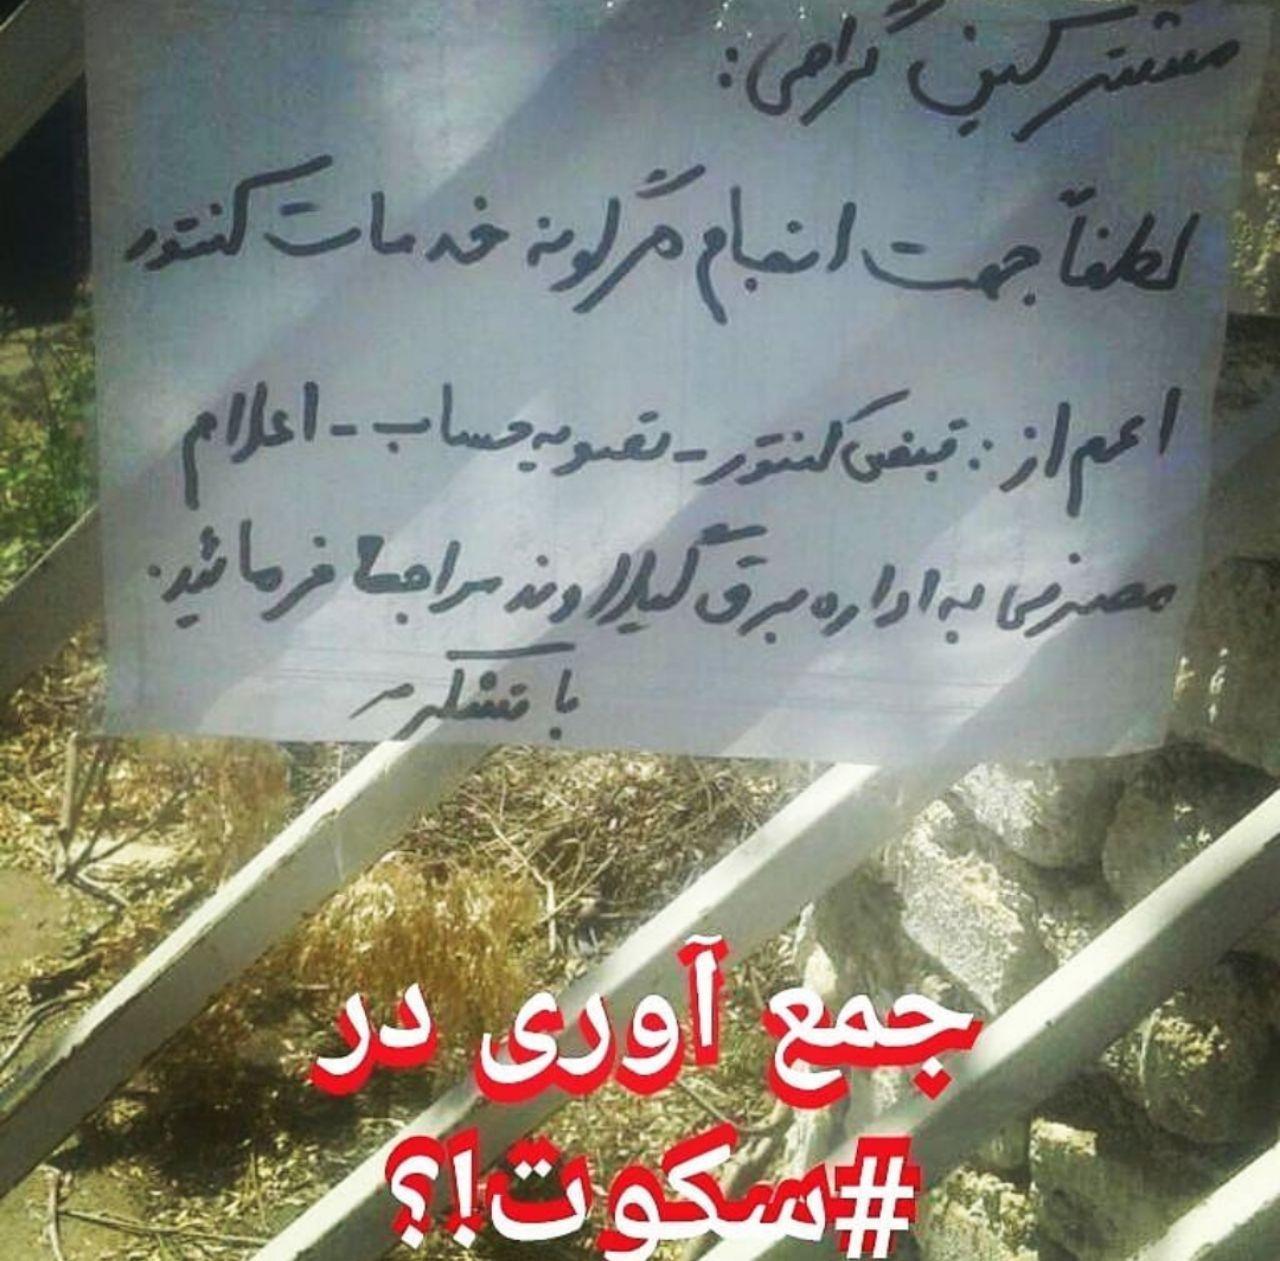 مشترکین گرامی:
لطفاً جهت انجام هرگونه خدمات کنتور
اعم از: قبض کنتور - تصویه حساب - اعلام
مصرفی به اداره برق گیلاوند مراجعه فرمائید.
با تشکر
جمع آوری در
#سکوت!؟